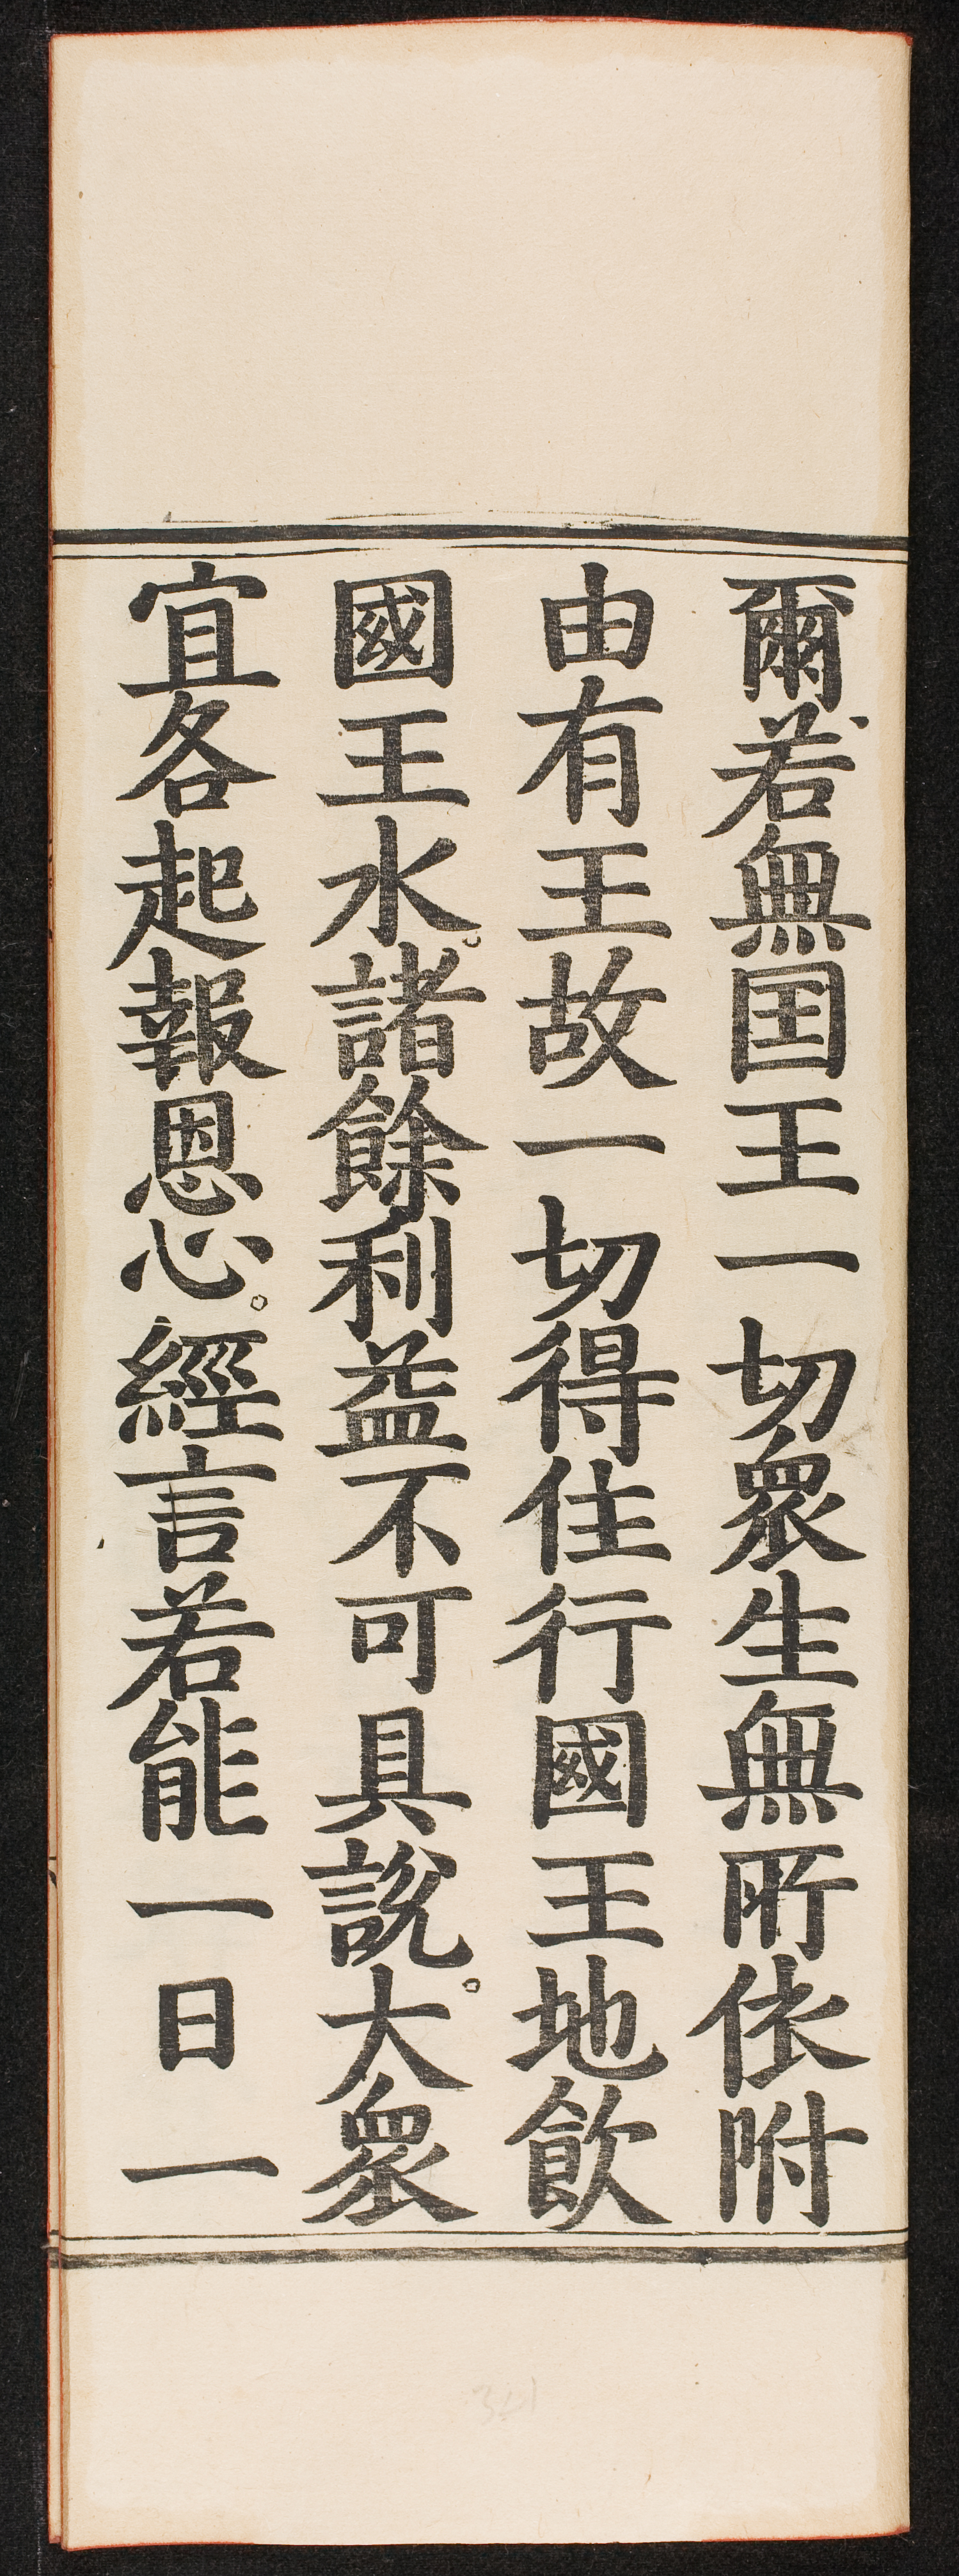 爾若無囯王一切眾生無所依附
由有王故一切得住行國王地飲
國王水。諸餘利益不可具說。大眾
宜各起報恩心。經言若能一日一